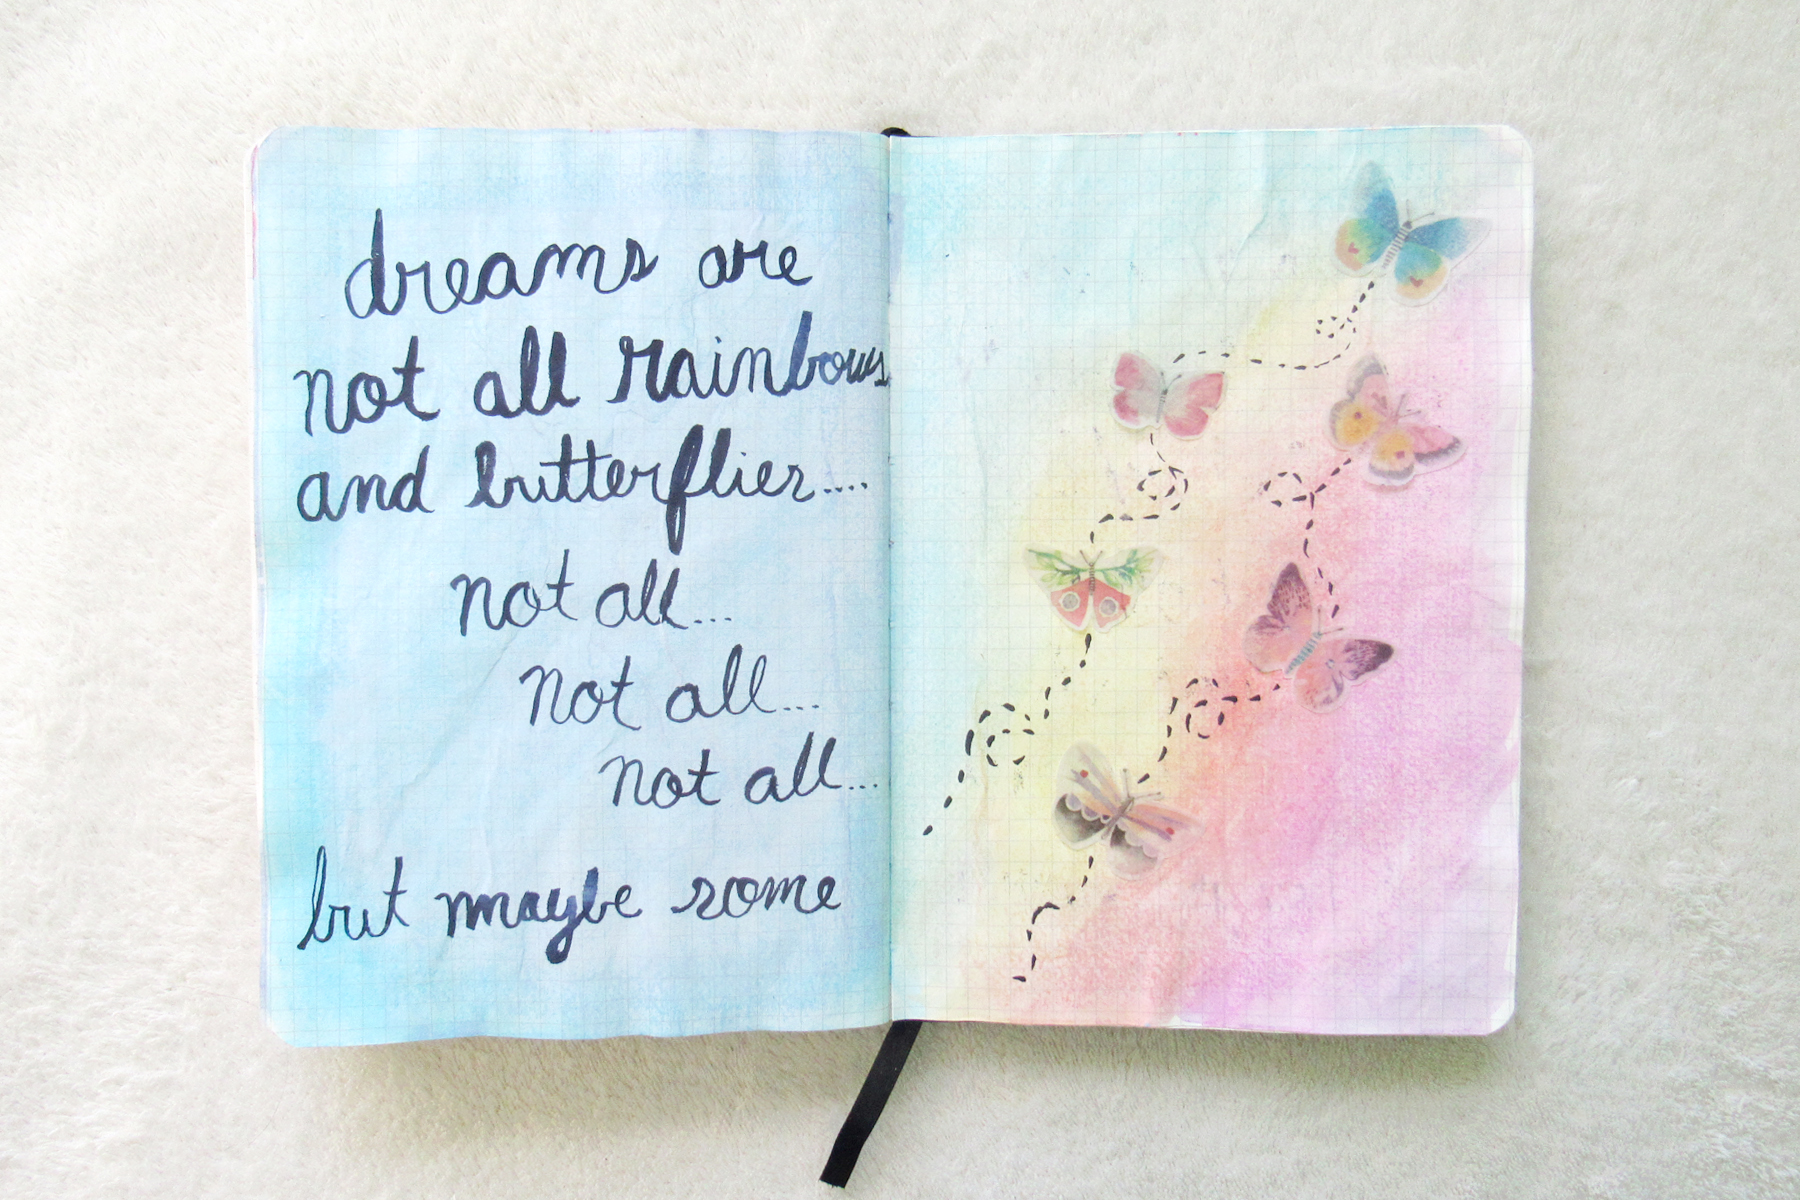 dreams are
not all rainbows
and butterflies....
not all...
not all...
not all...
but maybe some